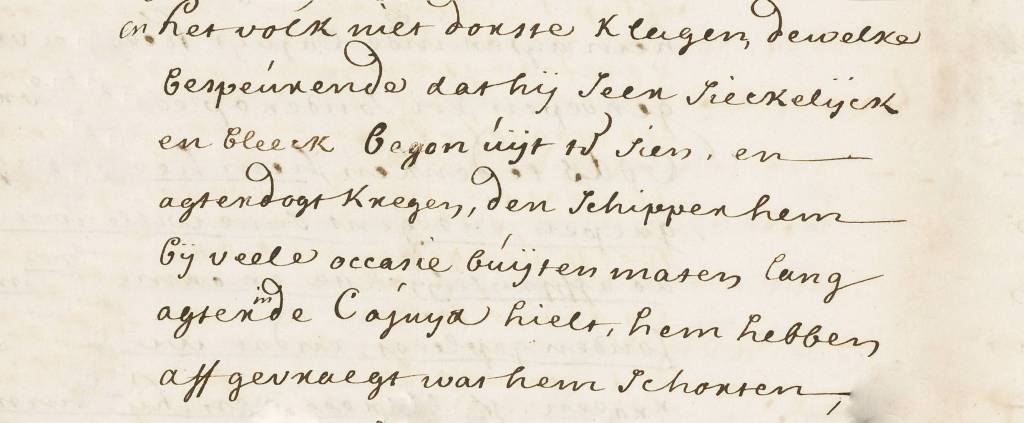 en het volk niet dorste klagen, dewelke
bespeurende dat hij seer sieckelijck
en bleeck begon uijt te sien, en
agterdogt kregen, den schipper hem
bij veele occasie buijten maten lang
agter in de Cajuyd hielt, hem hebben
aff gevraegt wat hem schorten,